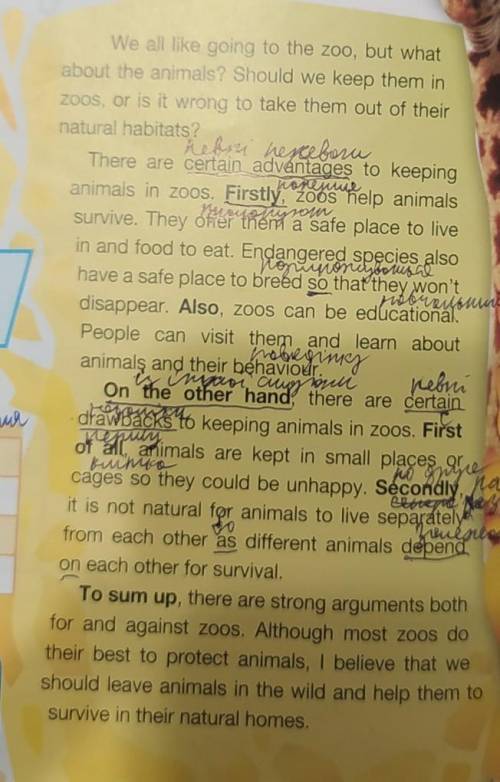 We all like going to the zoo, but what
about the animals? Should we keep them in
zoos, or is it wrong to take them out of their
natural habitats?
певні переваги
There are certain advantages to keeping
animals in zoos. Firstly, zoos help animals
survive. They offer them a safe place to live
in and food to eat. Endangered species also
have a safe place to breed so that they won't
disappear. Also, zoos can be educational.
People can visit them and learn about
поведінку
animals and their behaviour.
певні
On the other hand, there are certain
drawbacks to keeping animals in zoos. First
of all, animals are kept in small places or
cages so they could be unhappy. Secondly,
it is not natural for animals to live separately
from each other as different animals depend
on each other for survival.
To sum up, there are strong arguments both
for and against zoos. Although most zoos do
their best to protect animals, I believe that we
should leave animals in the wild and help them to
survive in their natural homes.